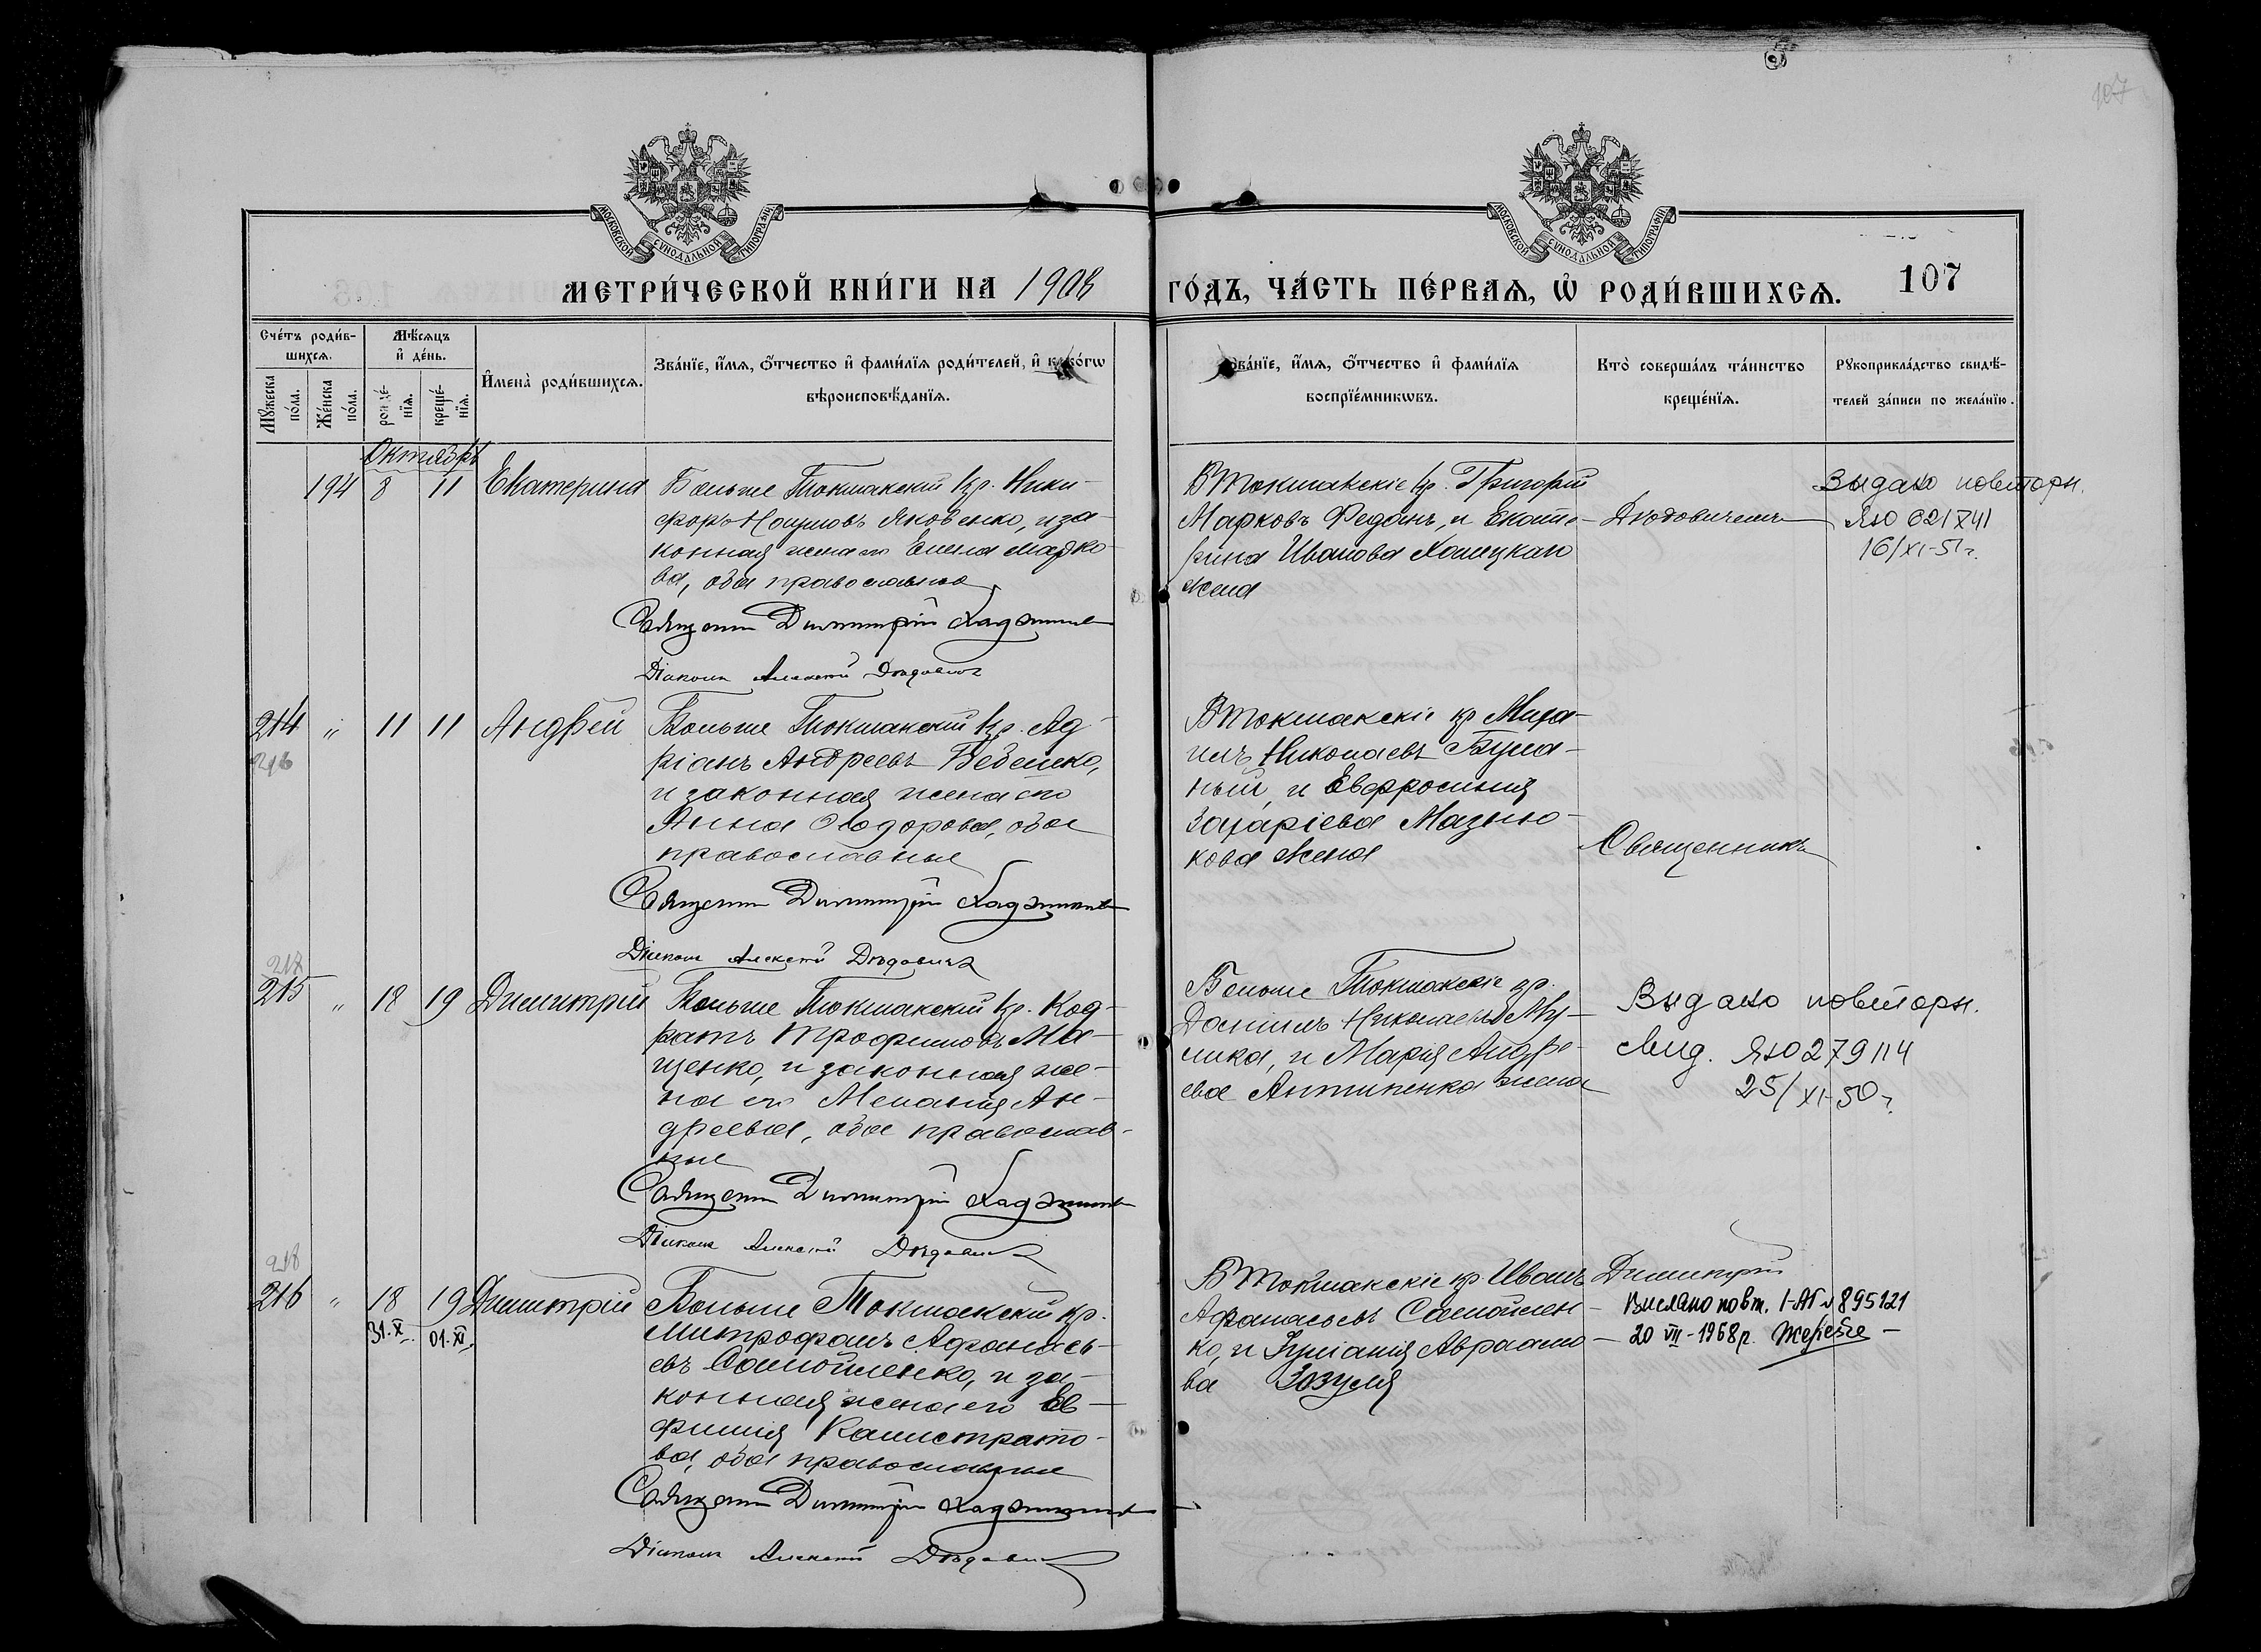 107
МОСКОВСКОЙ СѴНОДАЛЬНОЙ ТИПОГРАФІИ
МОСКОВСКОЙ СѴНОДАЛЬНОЙ ТИПОГРАФІИ
МЕТРИ́ЧЕСКОЙ КНИ́ГИ НА 1908
ГО́ДЪ, ЧА́СТЬ ПЕ́РВАѦ, Ѡ҆ РОДИ́ВШИХСѦ. 107
Сче́тъ роди́в-
шихсѧ.
Мꙋ́жеска
по́ла.
Же́нска
по́ла.
Мѣ́сѧцъ
и҆ де́нь.
рожде́-
нїѧ.
креще́-
нїѧ.
И҆мена̀ роди́вшихсѧ.
Зва́нїе, и҆́мѧ, ѻ҆́тчество и҆ фами́лїѧ роди́телей, и҆ како́гѡ
вѣроисповѣ́данїѧ.
Зва́нїе, и҆́мѧ, ѻ҆́тчество и҆ фами́лїѧ
воспрїе́мникѡвъ.
Кто̀ соверша́лъ та́инство
креще́нїѧ.
Рꙋкоприкла́дство свидѣ́-
телей за́писи по жела́нїю.
Октябрь
194 8 11 Екатерина
Больше Токмакскій кр. Ники-
форъ Наумовъ Яковенко, и за-
конная жена его Елена Марко-
ва, оба православные
Священник Димитрій
Діакон Алексѣй Дюдович
ВТокмакскіе кр. Григорій
Марковъ Феданъ, и Екате-
рина Иванова
жена
Дюдовичемъ
Выдано повторн.
ЯЮ 621741
16/XI-51г.
214 " 11 11 Андрей
216
Больше Токмакскій кр. Ад-
ріанъ Андреевъ
и законная жена его
Анна Ѳеодорова, обое
православные
Священник Димитрій
Діакон Алексѣй Дюдович
ВТокмакскіе кр Миха-
илъ Николаевъ
ный, и Евфросинія
Захаріева Мазню-
кова жена
Священникъ
217
215 " 18 19 Димитрій
Больше Токмакскій кр. Код-
ратъ Трофимовъ Ма-
щенко, и законная же-
на его Меланія Ан-
дреева, обое православ-
ные
Священник Димитрій
Діакон Алексѣй Дюдович
Больше Токмакскіе кр.
Даніилъ Николаевъ Му-
лика, и Марія Андре-
ева Антипенка жена
Выдано повторн.
свид. ЯЮ 279114
25/XI-50г.
218
216 " 18 19 Димитрій
31.X. 01.XI.
Больше Токмакскій кр.
Митрофанъ Афанась-
евъ Самойленко, и за-
конная жена его Ев-
фимія Каллистрато-
ва, оба православные
Священник Димитрій
Діакон Алексѣй Дюдович
ВТокмакскіе кр Иванъ
Афанасьевъ Самойлен-
ко, и Іуліанія Авраамо-
ва Зозуля
Димитрій
Вислано повт. І-АП № 895121
20 VII-1968р.